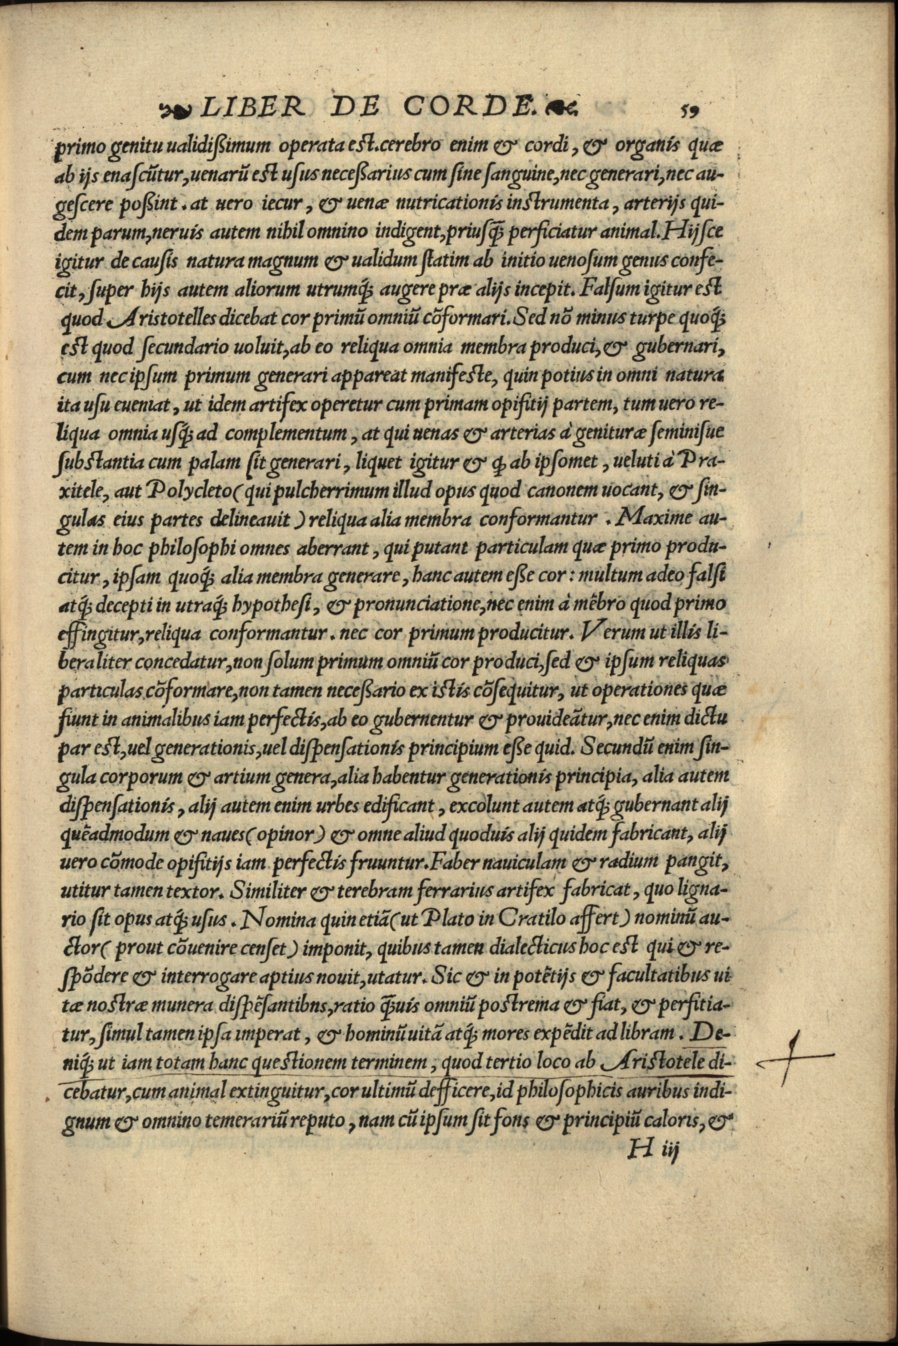 LIBER DE CORDE. 59
primo genitu ualidißimum operata est.cerebro enim & cordi, & organis quæ
ab ijs enascũtur,uenarũ est usus neceßarius cum sine sanguine,nec generari,nec au-
gescere poßint. at uero iecur, & uenæ nutricationis instrumenta, arterijs qui-
dem parum,neruis autem nihil omnino indigent,priusq̃ perficiatur animal.Hijsce
igitur de causis natura magnum & ualidum statim ab initio uenosum genus confe-
cit, super hijs autem aliorum utrumq́; augere præ alijs incepit. Falsum igitur est
quod Aristotelles dicebat cor primũ omniũ cõformari.Sed nõ minus turpe quoq́;
est quod secundario uoluit,ab eo reliqua omnia membra produci,& gubernari,
cum nec ipsum primum generari appareat manifeste, quin potius in omni natura
ita usu eueniat, ut idem artifex operetur cum primam opifitij partem, tum uero re-
liqua omnia usq́; ad complementum, at qui uenas & arterias à genituræ seminisue
substantia cum palam sit generari, liquet igitur & q̃ ab ipsomet, ueluti à Pra-
xitele, aut Polycleto(qui pulcherrimum illud opus quod canonem uocant, & sin-
gulas eius partes delineauit)reliqua alia membra conformantur. Maxime au-
tem in hoc philosophi omnes aberrant, qui putant particulam quæ primo produ-
citur, ipsam quoq́; alia membra generare, hanc autem eße cor: multum adeo falsi
atq́; decepti in utraq́; hypothesi, & pronunciatione,nec enim à mẽbro quod primo
effingitur,reliqua conformantur. nec cor primum producitur. Verum ut illis li-
beraliter concedatur,non solum primum omniũ cor produci,sed & ipsum reliquas
particulas cõformare,non tamen neceßario ex istis cõsequitur, ut operationes quæ
fiunt in animalibus iam perfectis,ab eo gubernentur & prouideãtur,nec enim dictu
par est,uel generationis,uel dispensationis principium eße quid. Secundũ enim sin-
gula corporum & artium genera,alia habentur generationis principia, alia autem
dispensationis, alij autem enim urbes edificant, excolunt autem atq́; gubernant alij
quẽadmodum & naues(opinor)& omne aliud quoduis alij quidem fabricant, alij
uero cõmode opifitijs iam perfectis fruuntur.Faber nauiculam & radium pangit,
utitur tamen textor. Similiter & terebram ferrarius artifex fabricat, quo ligna-
rio sit opus atq́; usus. Nomina quin etiã(ut Plato in Cratilo affert)nominũ au-
ctor(prout cõuenire censet)imponit, quibus tamen dialecticus hoc est qui & re-
spõdere & interrogare aptius nouit,utatur. Sic & in potẽtijs & facultatibus ui
tæ nostræ munera dispẽsantibns,ratio q̃uis omniũ postrema & fiat, & perfitia-
tur, simul tamen ipsa imperat, & hominũ uitã atq́; mores expẽdit ad libram. De-
niq́; ut iam totam hanc questionem terminem, quod tertio loco ab Aristotele di-
cebatur,cum animal extinguitur,cor ultimũ defficere,id philosophicis auribus indi-
gnum & omnino temerariũ reputo, nam cũ ipsum sit fons & principiũ caloris, &
H iij